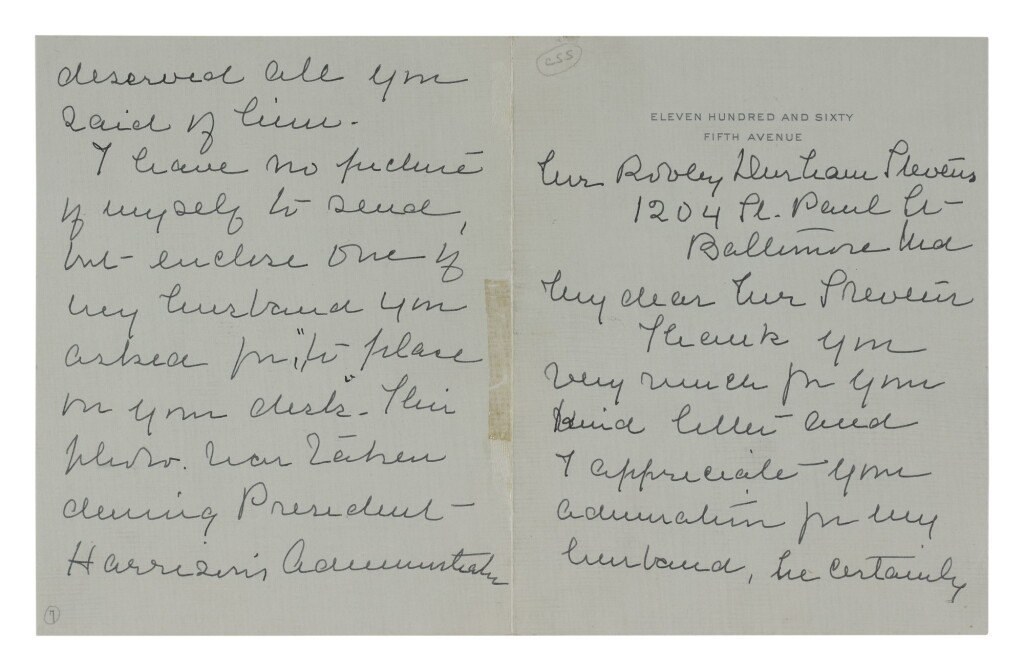 css
ELEVEN HUNDRED AND SIXTY
FIFTH AVENUE
Mr Rovley Durham Stevens
1204 St. Paul St-
Baltimore Md
My dear Mr Stevens
Thank you
very much for your
kind letter and
I appreciate your
admiration for my
husband, he certainly
deserved all you
said of him.
I have no picture
of myself to send,
but enclose one of
my husband you
asked for, "to place
on your desk". This
photo. was taken
during President
Harrison's Administration
7